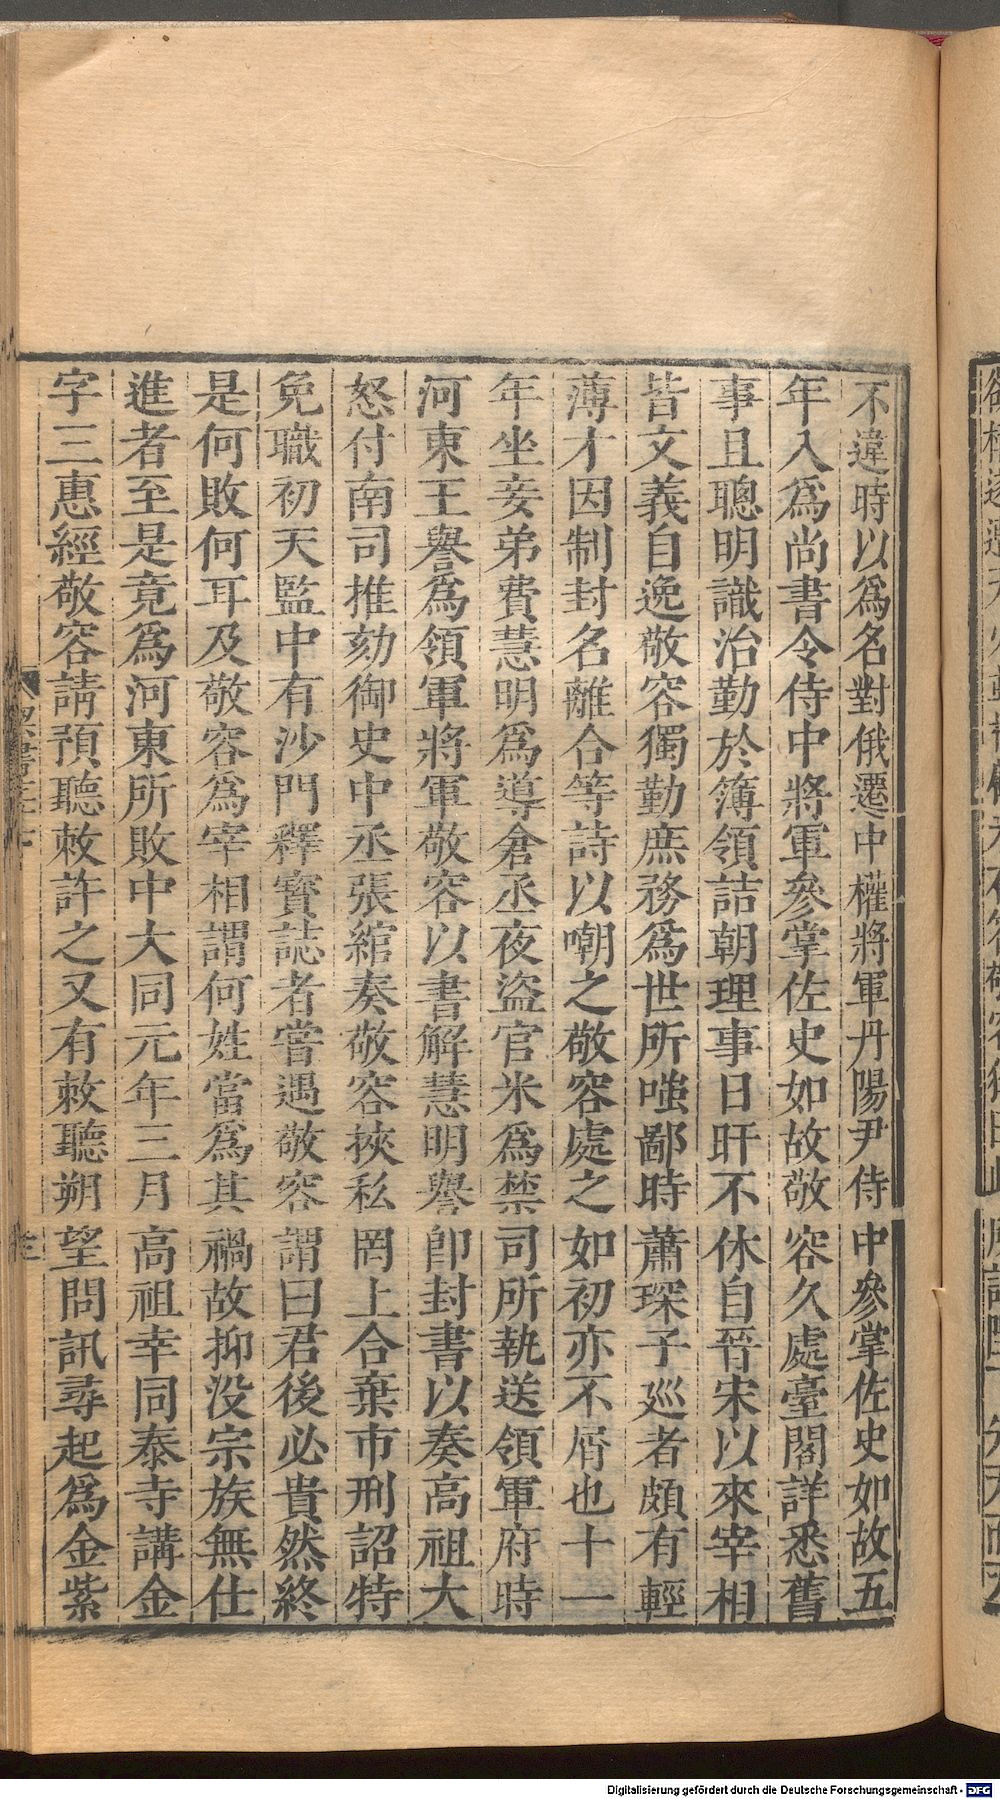 不違時以爲名對俄遷中權將軍丹陽尹侍中參掌佐史如故五
年入爲尚書令侍中將軍參掌佐史如故敬容久處臺閣詳悉舊
事且聰明識治勤於簿領詰朝理事日旰不休自晉宋以來宰相
皆文義自逸敬容獨勤庶務爲世所嗤鄙時蕭琛子巡者頗有輕
薄才因制卦名離合等詩以嘲之敬容處之如初亦不屑也十一
年坐妾弟費慧明爲導倉丞夜盜官米爲禁司所執送領軍府時
河東王譽爲領軍將軍敬容以書解慧明譽卽封書以奏高祖大
怒付南司推劾御史中丞張綰奏敬容挾私罔上合棄市刑詔特
免職初天監中有沙門釋寶誌者嘗遇敬容謂曰君後必貴然終
是何敗何耳及敬容爲宰相謂何姓當爲其禍故抑没宗族無仕
進者至是竟爲河東所敗中大同元年三月高祖幸同泰寺講金
字三惠經敬容請預聽敕許之又有敕聽朔望問訊尋起爲金紫
Digitalisierung gefördert durch die Deutsche Forschungsgemeinschaft - DFG